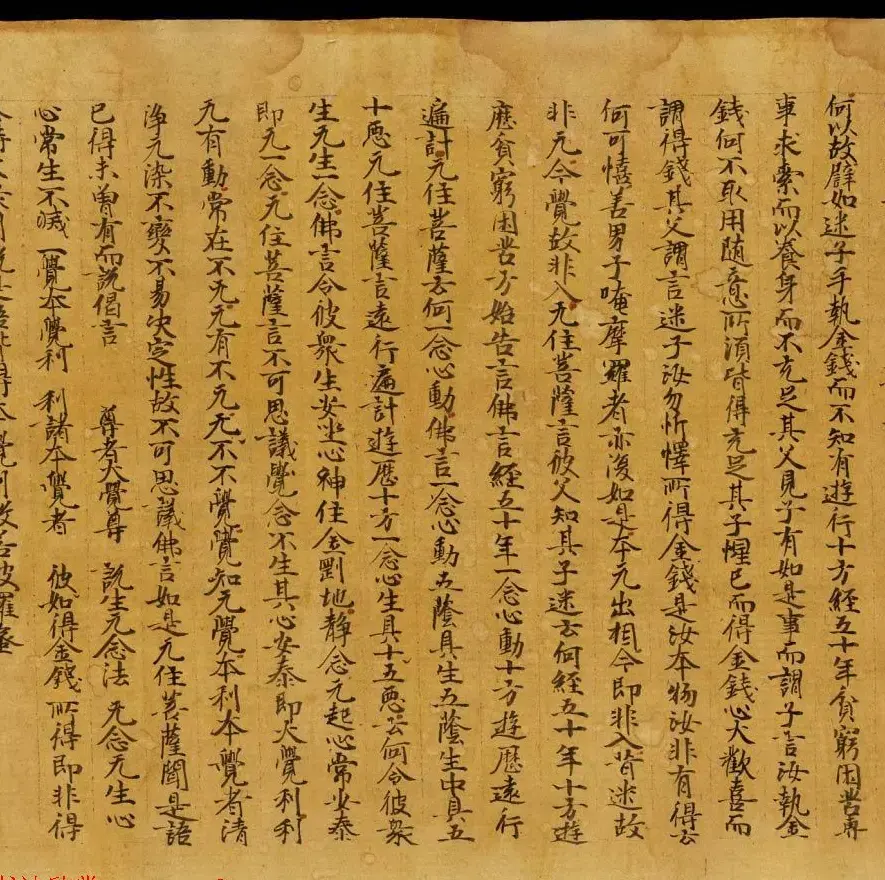 何以故譬如迷子手執金錢而不知有遊行十方經五十年貧窮困苦專
事求索而以養身而不充足其父見子有如是事而謂子言汝執金
錢何不取用随意所湏皆得充足其子惺已而得金錢心大歡喜而
謂得錢其父謂言迷子汝勿忻懌所得金錢是汝本物汝非有得云
何可憘善男子唵摩羅者亦復如是本无出相今即非入昔迷故
非无今覺故非入无住菩薩言彼父知其子迷云何經五十年十方遊
歷貧窮困苦方始告言佛言經五十年一念心動十方遊歷遠行
遍計无住菩薩云何一念心動佛言一念心動五蔭具生五蔭生中具五
十惡无住菩薩言遠行遍計遊歷十方一念心生具十五惡云何令彼衆
生无生一念佛言令彼衆生安坐心神住金剛地静念无起心常安泰
即无一念无住菩薩言不可思議覺念不生其心安泰即大覺利利
无有動常在不无无有不无无不不覺覺知无覺本利本覺者清
淨无染不變不易决定性故不可思議佛言如是无住菩薩聞是語
已得未曾有而說偈言 尊者大覺尊 說生无念法 无念无生心
心常生不滅 一覺本覺利 利諸本覺者 彼如得金錢 所得即非得